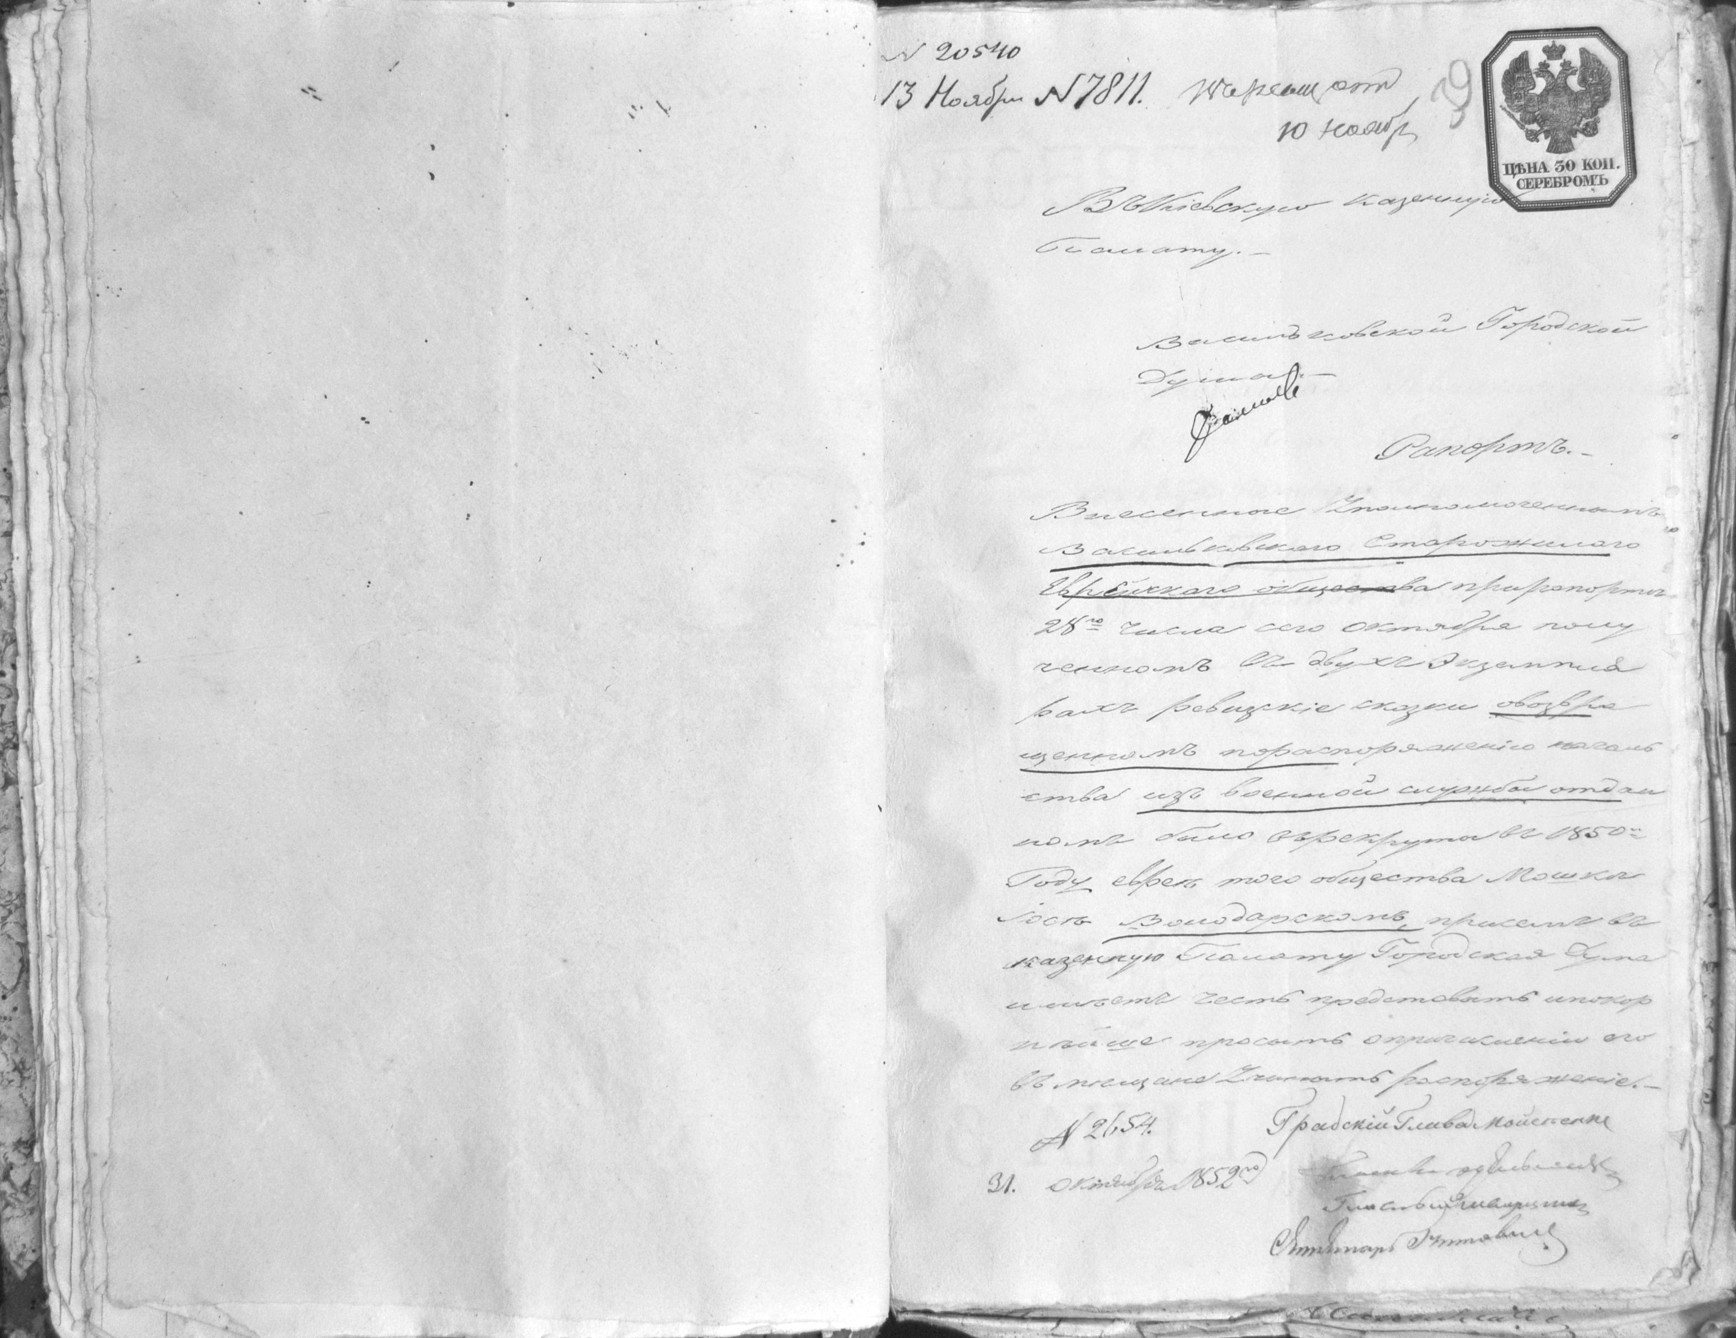 N 20540
13 Ноября N 7811.
10 Ноябр
ЦѢНА 30 КОП.
СЕРЕБРОМЪ
Въ Кіевскую Казенную
Палату.
Васильковской Городской
Думы
Рапортъ.
Внесенные Уполномоченнымъ
Васильковского Старожилого
Еврейского общества при рапорте
28го числа сего Октября полу
ченномъ въ двухъ Экземпля
рахъ ревизскіе сказки о возвра
щенномъ по распоряженію началь
ства изъ военной службы отдан
номъ было въ рекруты въ 1850м
Году еврею того общества Мошки
Володарскомъ, при семъ въ
казенную Палату Городская Дума
имѣетъ честь представить и покор
нѣйше просить о причисленіи его
въ мещане Учинить распоряженіе.
N 2654.
Градскій Глава
31. Октября 1852го
Гласный